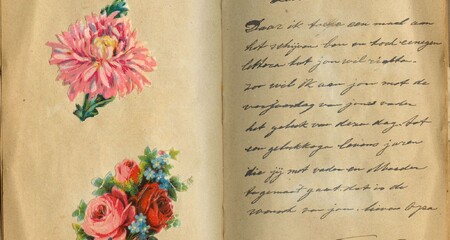 Daar ik toine een maal aan
het schijven ben en toch eenigen
letters tot jou wil richte.
zoo wil ik aan jou met de
verjaardag van jouw vader
het geluk van deze dag. tot
een gelukkige levens jaren
die jij met vader en Moeder
tegemoet gaat. dat is de
wensch van jou. lieve Opa